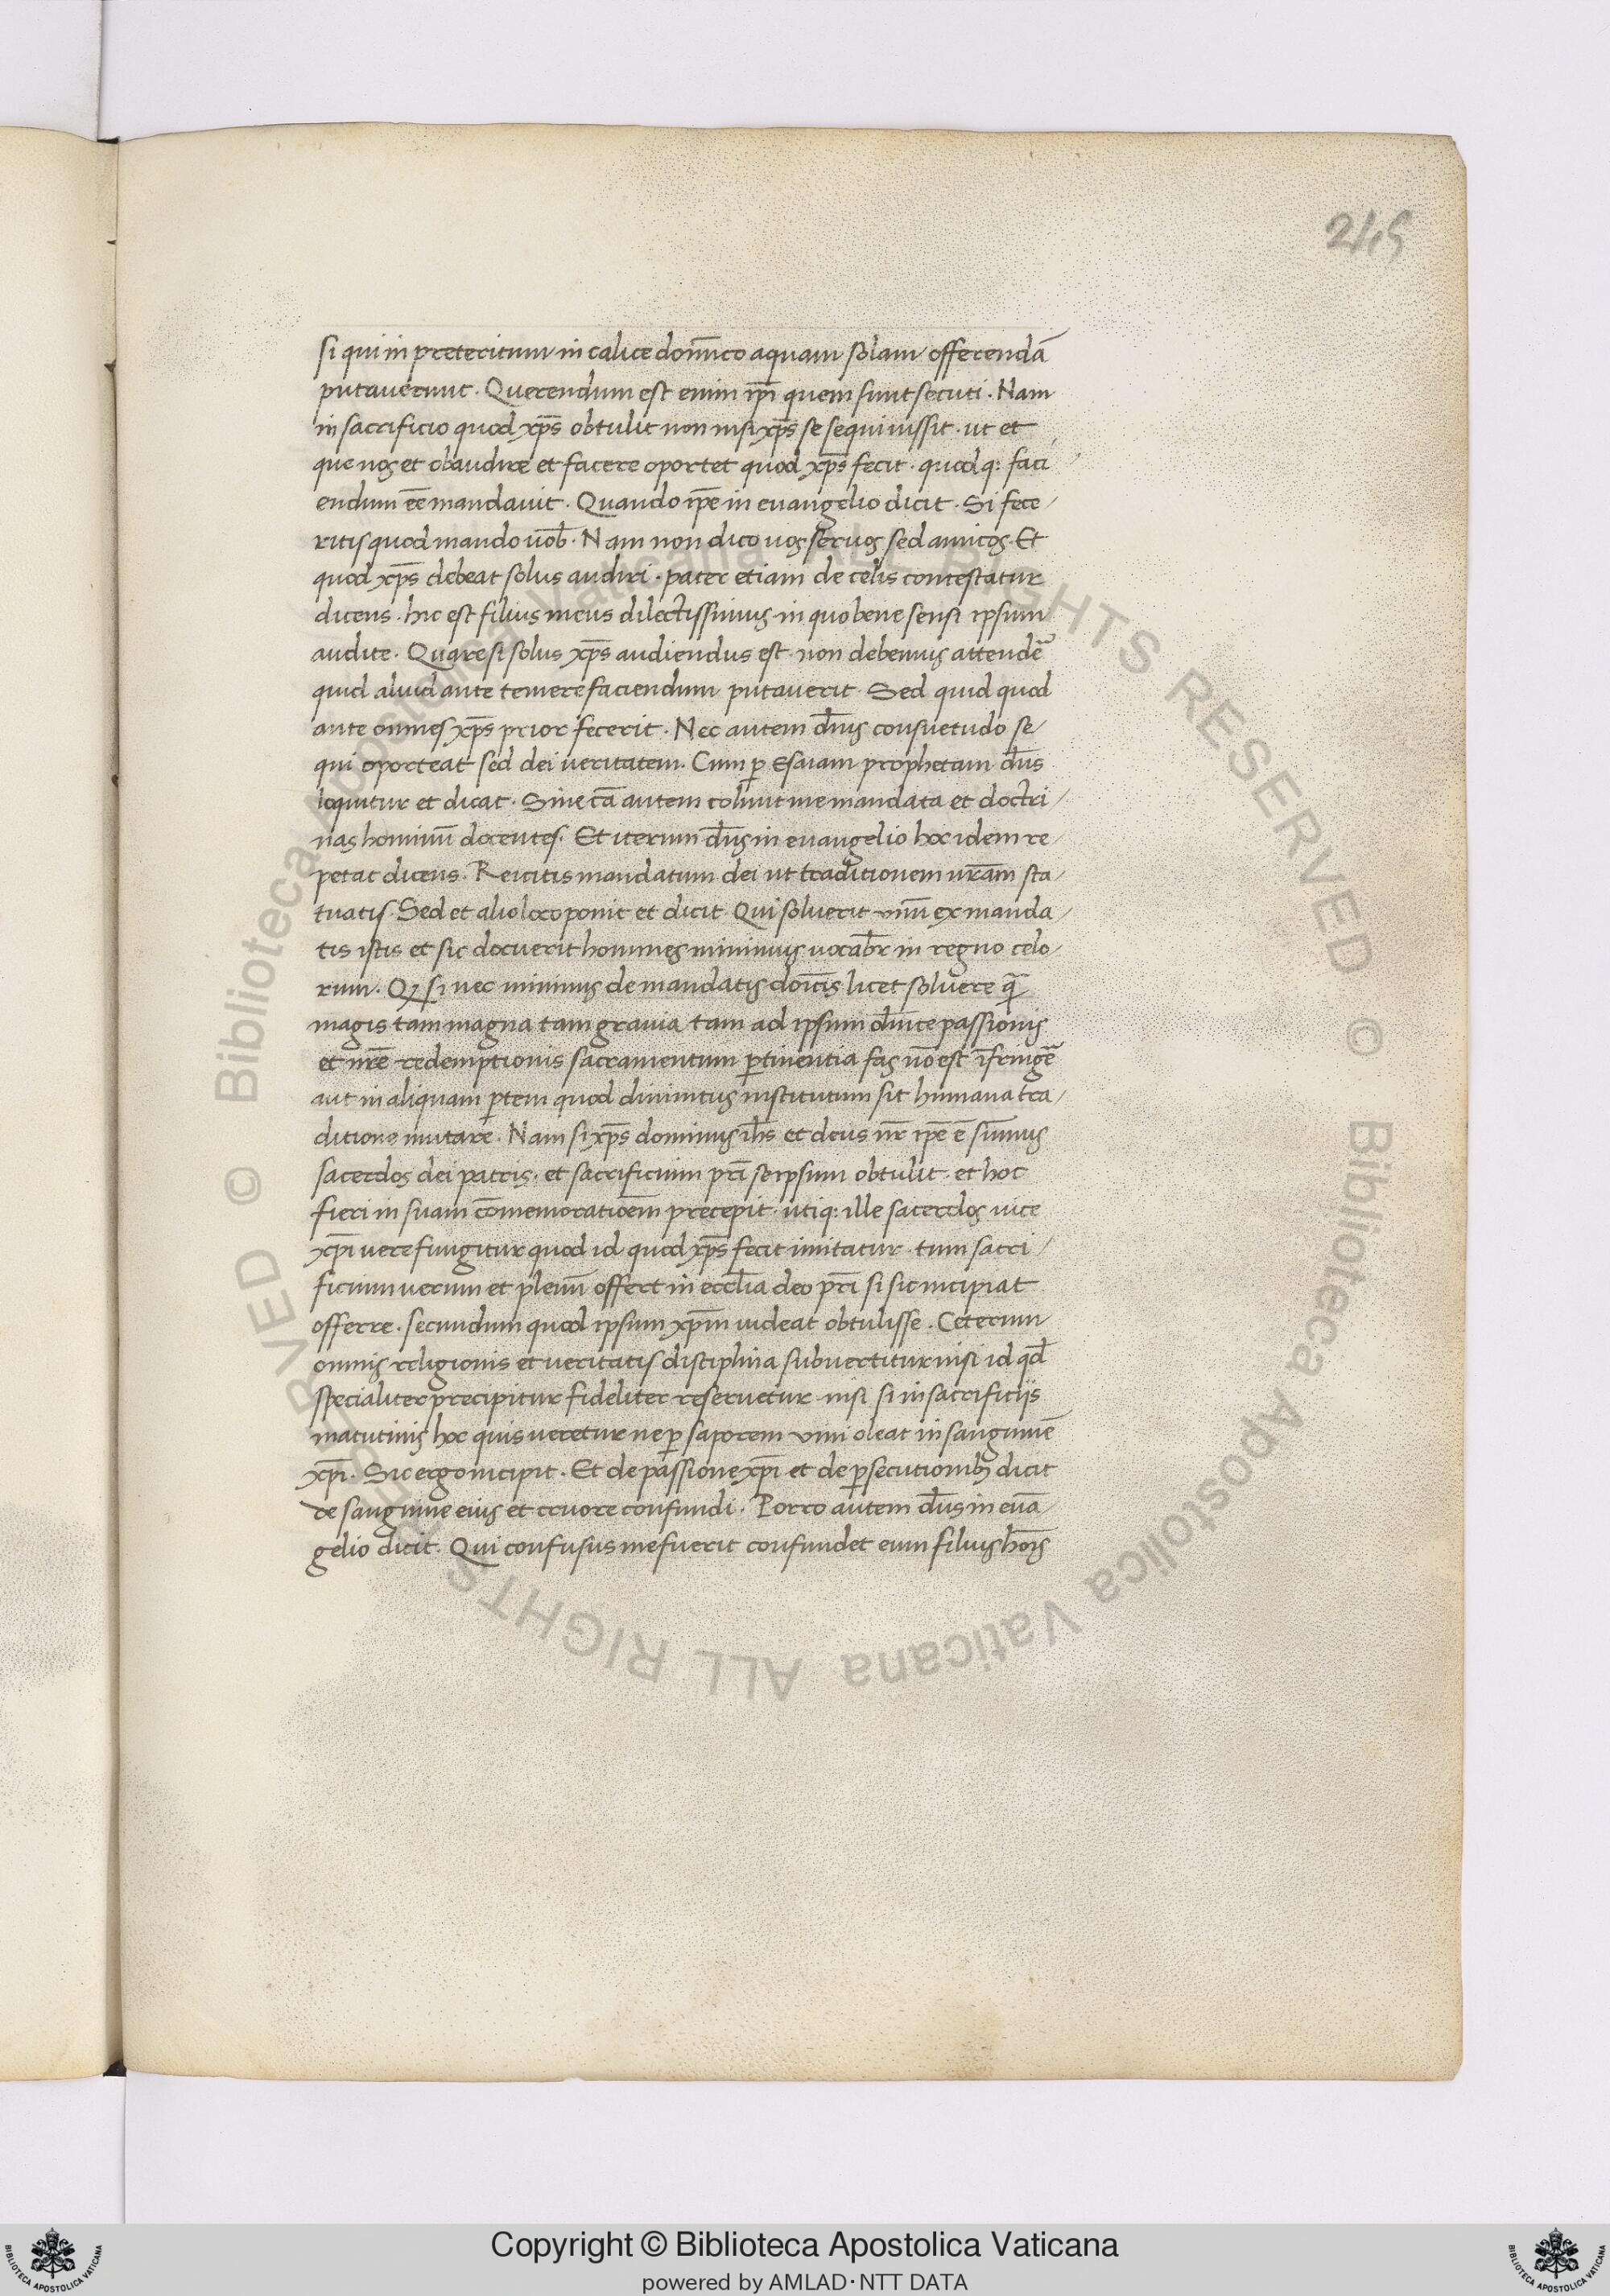 245
si qui in preteritum in calice dom̄ico aquam solam offerendā
putaverunt. Querendum est enim ip̄i quem sunt secuti. Nam
in sacrificio quod xp̄s obtulit non nisi xp̄s se sequi iussit. ut et
que nos et obaudire et facere oportet quod xp̄s fecit. quod q: faci/
endum ēē mandavit. Quando ip̄e in evangelio dicit. Si fece/
ritis quod mando uob̄. Nam non dico uos servos sed amicos. Et
quod xp̄s debeat solus audiri. pater etiam de celis contestatur
dicens. hic est filius meus dilectissimus in quo bene sensi ipsum
audite. Quare si solus xp̄s audiendus est. non debemus attendē
quid aliud ante temere faciendum putaverit. Sed quid quod
ante omnes xp̄s prior fecerit. Nec autem consuetudo se/
qui oporteat sed dei veritatem. Cum p̱ Esaiam prophetam dn̄s
loquitur et dicat. Sine cā autem colunt me mandata et doctri/
nas hominū docentes. Et iterum dn̄s in evangelio hoc idem re/
petat dicens. Reicitis mandatum dei ut traditionem vrām sta/
tuatis. Sed et alio loco ponit et dicit. Qui solverit unū ex manda/
tis istis et sic docuerit homines minimus vocabr̄ in regno celo/
rum. Qꝫ si nec minimus de mandatis doīcis licet solvere qā
magis tam magna tam gravia tam ad ipsum passionis
et nr̄e redemptionis sacramentum ptinentia fas nō est īfringē
aut in aliquam ptem quod divinitus institutum sit humana tra/
ditione mutare. Nam si xp̄s dominus ih̄s et deus nr̄ ip̄e ē sūmus
sacerdos dei patris. et sacrificium pr̄i seipsum obtulit. et hoc
fieri in suam cōmemoratioēm precepit. utiq: ille sacerdos vice
xp̄i vere fungitur quod id quod xp̄s fecit imitatur. tum sacri/
ficium verum et plenū offert in eccl̄ia deo pr̄i si sic incipiat
offerre. secundum quod ipsum xp̄m videat obtulisse. Ceterum
omnis religionis et veritatis disciplina subvertitur nisi id qd̄
specialiter precipitur fideliter reservetur. nisi si in sacrificiis
matutinis hoc quis veretur ne p̱ saporem vini oleat in sanguinē
xp̄i. Sic ergo incipit. Et de passione xp̄i et de psecutionibꝫ dicit
de sanguine eius et cruore confundi. Porro autem dn̄s in evā
gelio dicit. Qui confusus me fuerit confundet eum filius hoīs
Copyright © Biblioteca Apostolica Vaticana
powered by AMLAD·NTT DATA